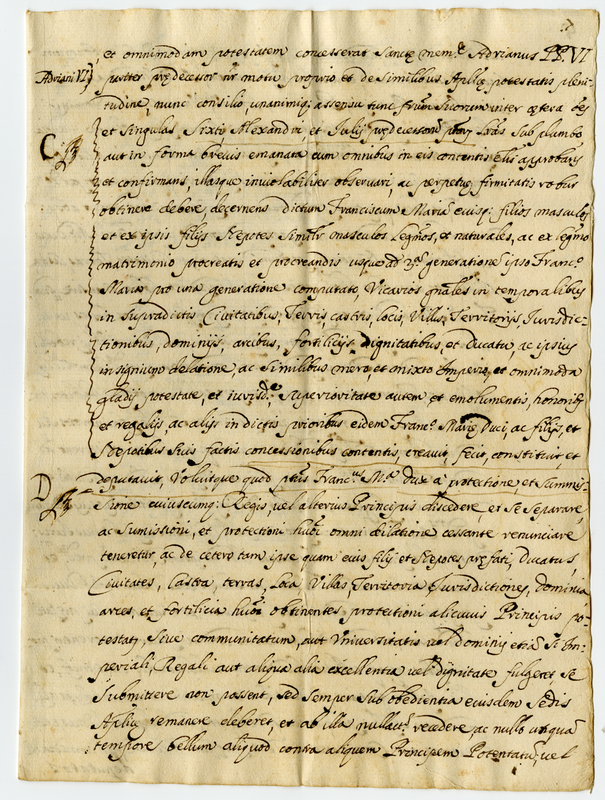 7
et omnimodam potestatem concesserat Sanctę mem.ę Adrianus PP. VI
Adriani VI
prędecessor nr motu proprio et de similibus Aplicę potestatis pleni-
tudine, nunc consilio unanimiq; assensu tunc frum suorum inter cętera
et singulas, Sixti Alexandri, et Iulij prędecessorū lras sub plumbo
C
aut in forma brevis emanatas cum omnibus in eis contentis approbans
et confirmans, illasque inviolabiliter observari, ac perpetuę firmitatis robur
obtinere debere, decernens dictum Franciscum Mariā eiusq; filios masculos
et ex ipsis filijs Nepotes similr masculos legmos, et naturales, ac ex legmo
matrimonio procreatis et procreandis usque ad generatione ipso Franc.o
Maria pro una generatione computato, Vicarios gnales in temporalibus
in supradictis Civitatibus, Terris, castris, locis, Villis, Territorijs, Iurisdic-
tionibus, dominijs, arcibus, fortilicijs, dignitatibus, et ducatu, ac ipsius
insignium delatione, ac similibus mero et mixto Imperio, et omnimoda
gladij potestate, et iurisd.e superioritate autem et emolumentis, honorib;
et regalijs, ac alijs in dictis prioribus eidem Franc.o Marię Duci, ac filijs, et
Nepotibus suis factis concessionibus contentis, creavit, fecit, constituit et
D
deputavit, Voluitque quod Franc.us M.a Dux a protectione, et summis-
sione cuiuscumq; Regis vel alterius Principis discedere, et se separare,
ac sumissioni, et protectioni huoi omni dilatione cessante renunciare
teneretur, ac de cetero tam ipse quam eius filij et Nepotes pręfati, Ducatus,
Civitates, Castra, terras, Loca Villas, Territoria Iurisdictiones, dominia
arces, et fortilicia huoi obtinentes protectioni alicuius Principis po-
testatj, sive communitatum, aut Universitatis vel dominij etiā si Im-
periali, Regali aut aliqua alia excellentia vel dignitate fulgeret se
submittere non possent, sed semper sub obedientia eiusdem Sedis
Aplicę remanere deberet, et ab illa nullact.s recedere ac nullo unquā
tempore bellum aliquod contra aliquem Principem Potentatū, vel